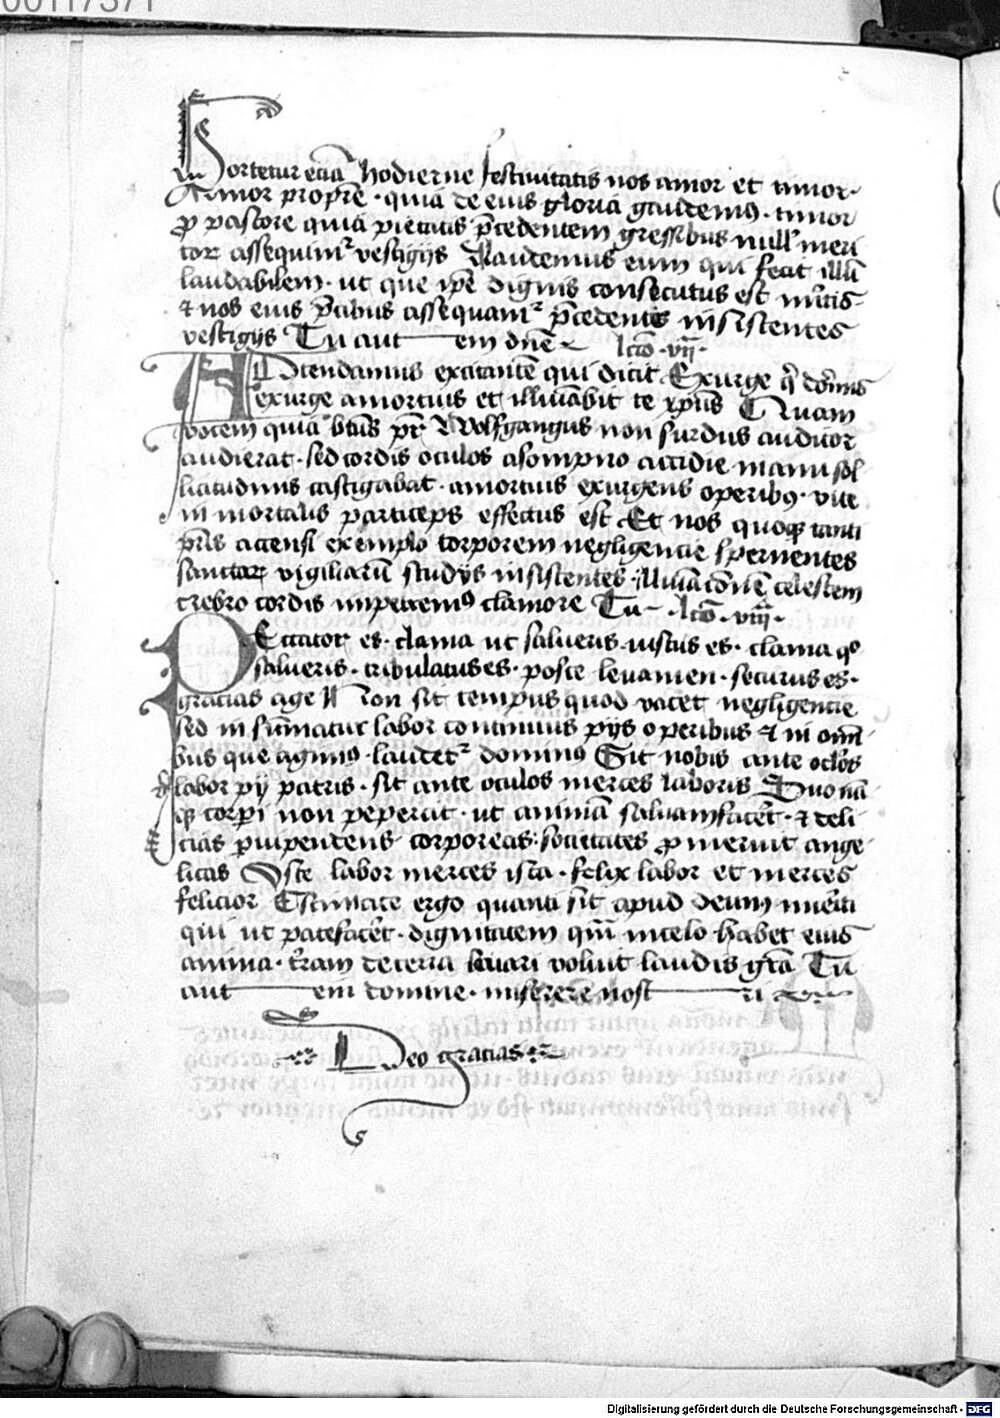 00117371
Hortetur eciā hodierne festiuitatis nos amor et timor·
Amor propre · quia de eius gloria gaudemus · timor
ꝓ pastore quia pietatis p̄cedentem gressibus null' meri
tor assequimr̄ vestigijs Laudemus eum qui fecit illū
laudabilem · ut que ip̄e dignis consecutus est m̄itis
⁊ nos eius p̄cibus assequamr̄ p̄cedentis insistentes
vestigijs Tu aut em dn̄e lctō · vij ·
Attendamus excitantē qui dicit Exurge qͥ dormis
exurge amortuis et illuminabit te xp̄us Quam
vocem quia btūs pr̄ Wolfgangus non surdus auditor
audierat · sed cordis oculos asompno accidie manu sol
licitudinis castigabat · amortuis exurgens operibꝰ · vite
in mortalis particeps effectus est Et nos quoqꝫ tanti
pr̄is accensi exemplo torporem negligencie spernentes
sanctaꝝ vigiliarū studijs insistentes · celestem
crebro cordis impetremꝰ clamore Tu lctō · viij ·
Peccator es · clama ut salueris iustus es · clama qo
salueris · tribulatus es · posce leuamen · securus es ·
gracias age Non sit tempus quod vacet negligencie
sed in sūmatur labor continuus pijs operibus ⁊ in omī
bus que agimꝰ · laudetr̄ dominꝰ Sit nobis ante oclōs
labor pij patris · sit ante oculos merces laboris Quo nā
qꝫ corpi non pepercit · ut animā saluam facēt · ⁊ deli
cias ꝑuipendens corporeas · societates ꝓmeruit ange
licas Iste labor merces ista · felix labor et merces
felicior Estimate ergo quanti sit apud deum m̄iti
qui ut patefacēt · dignitatem qm̄ in celo habet eius
anima · tr̄am deterra leuari voluit laudis grā Tu
aut em domine · miserere nost ri
Deo gracias
Digitalisierung gefördert durch die Deutsche Forschungsgemeinschaft - DFG